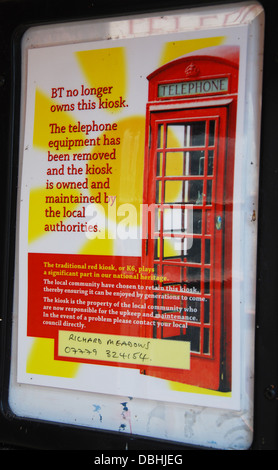 BT no longer
owns this kiosk.
The telephone
equipment has
been removed
and the kiosk
is owned and
maintained by
the local
authorities.
TELEPHONE
The traditional red kiosk, or K6, plays
a significant part in our national heritage.
The local community have chosen to retain this kiosk,
thereby ensuring it can be enjoyed by generations to come.
The kiosk is the property of the local community who
are now responsible for the upkeep and maintenance.
In the event of a problem please contact your local
council directly.
RICHARD MEADOWS
07779 324154
alamy
DBHJEG
www.alamy.com